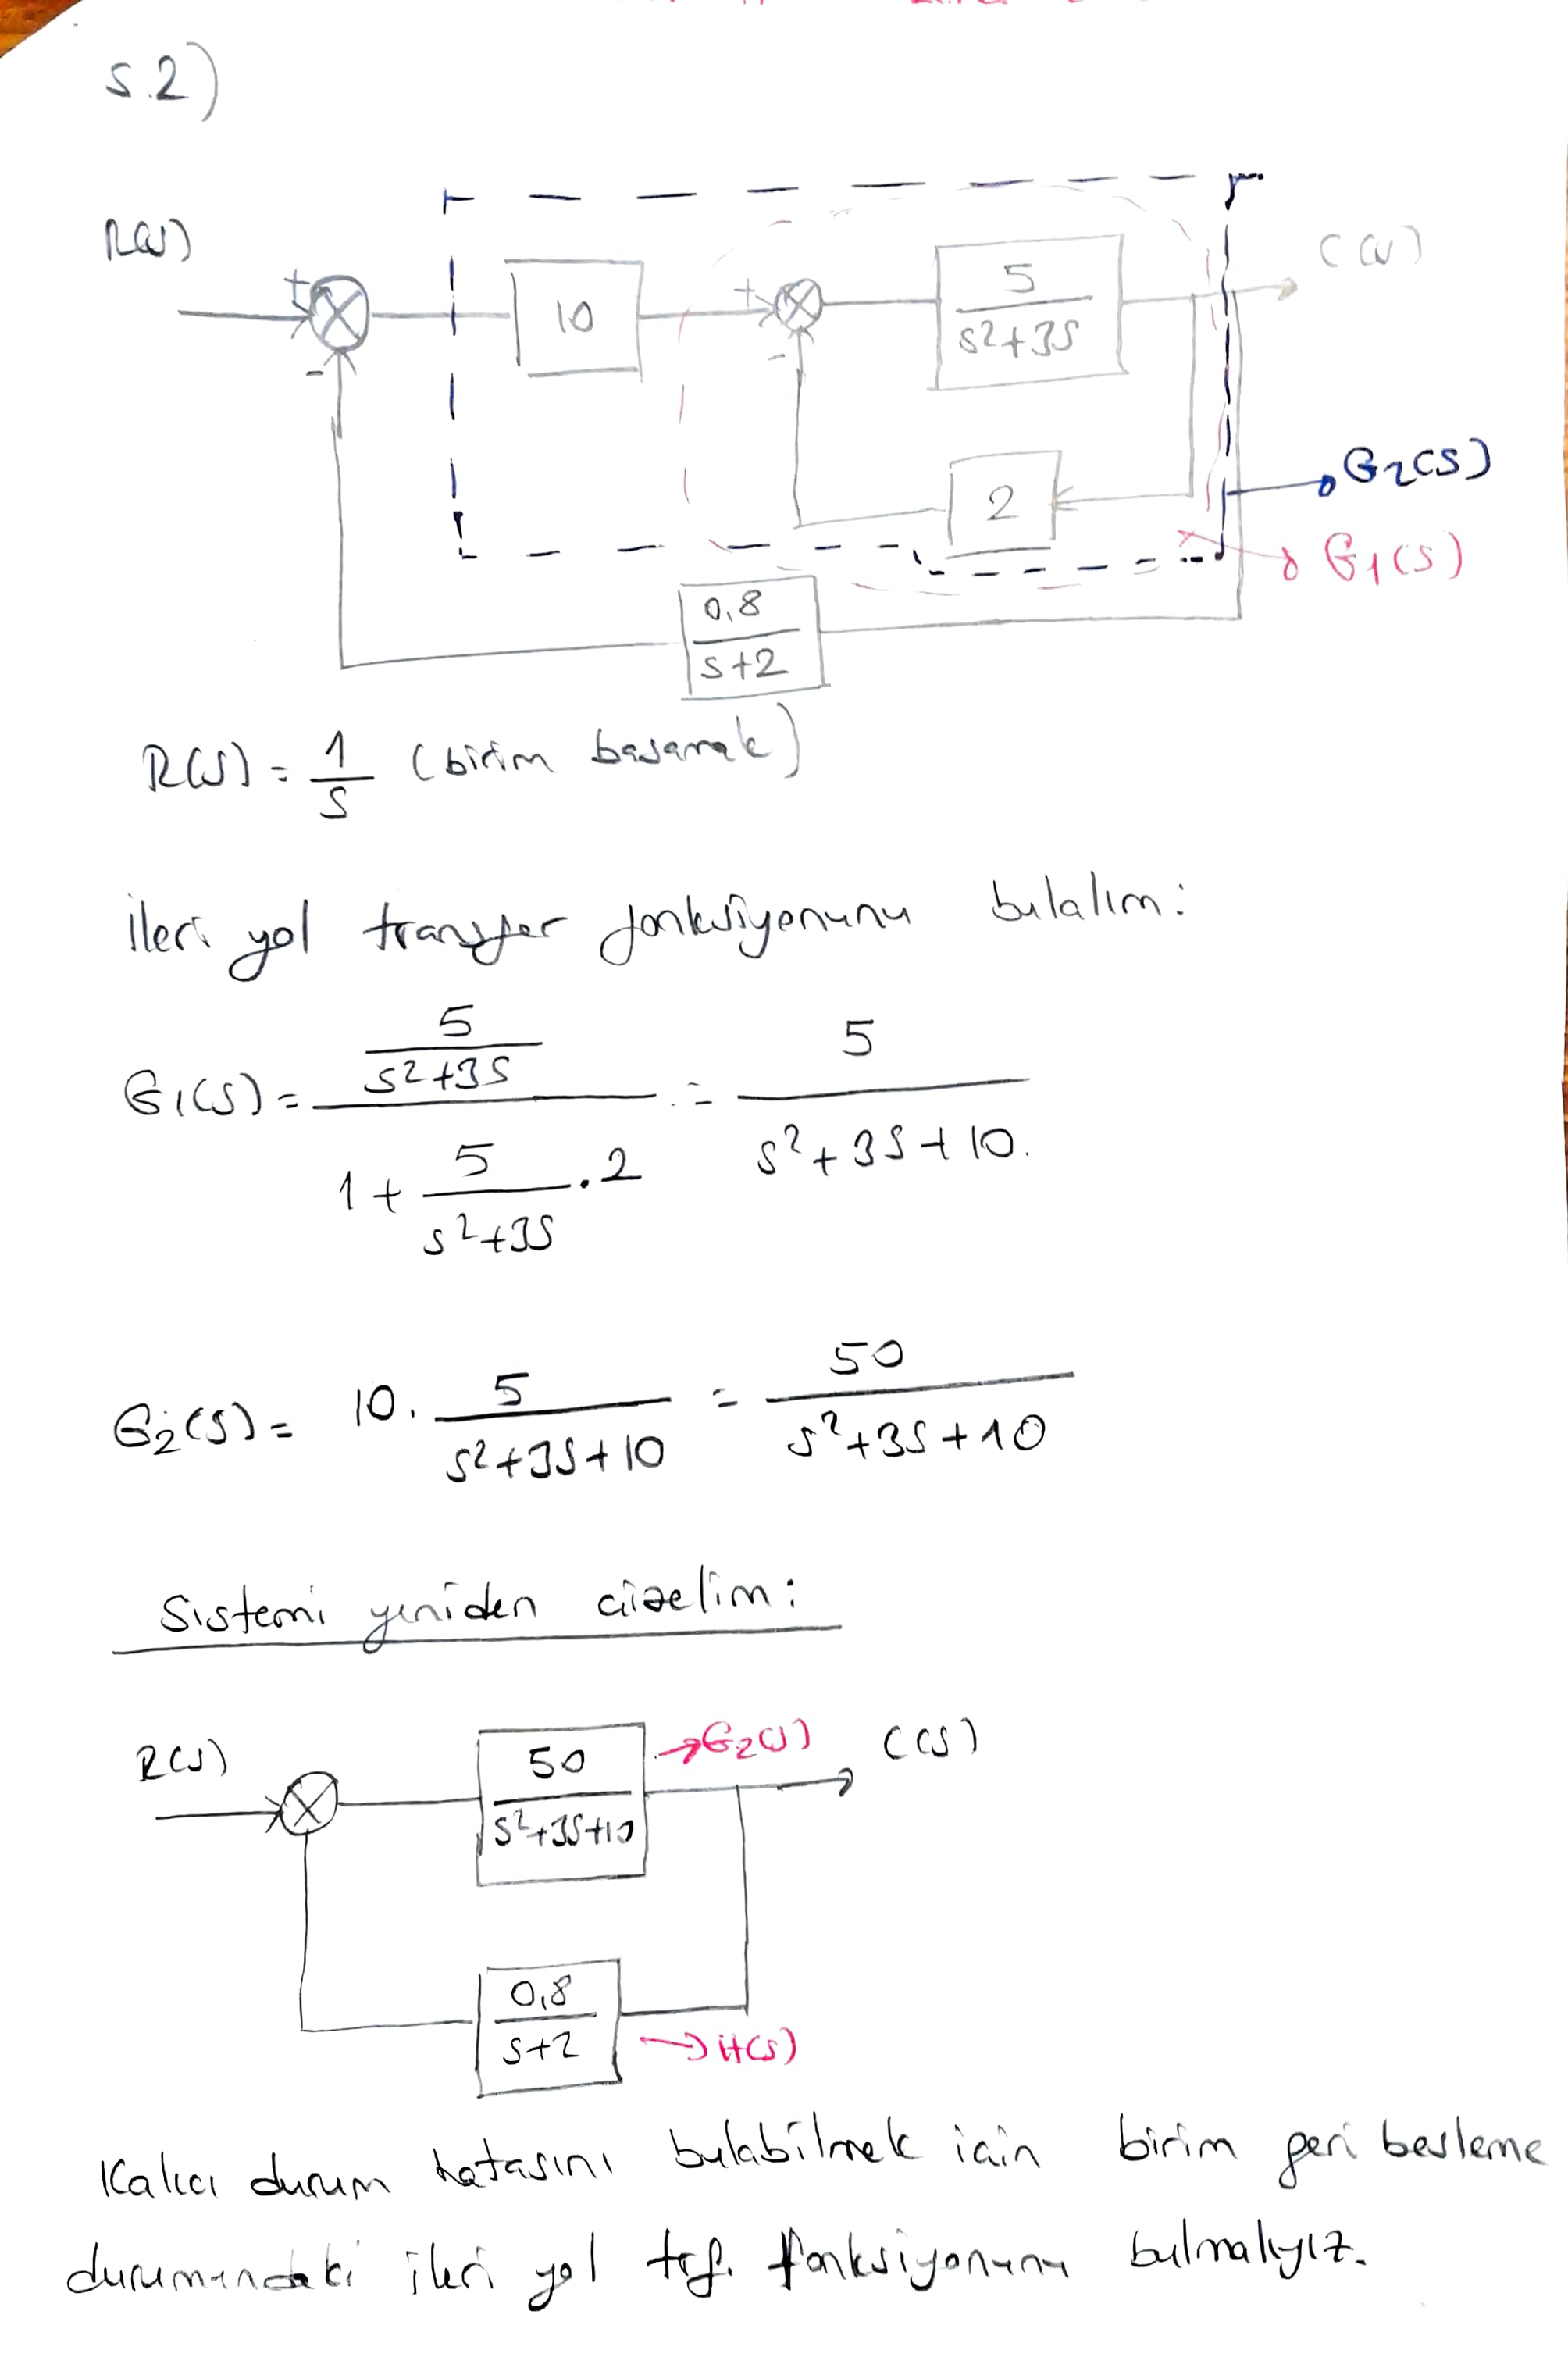 S.2)
R(s) + - 10 + - 5/(s²+3s) C(s)
2
G₂(s)
G₁(s)
0,8/(s+2)
R(s) = 1/s (birim basamak)
İleri yol transfer fonksiyonunu bulalım:
G₁(s) = (5/(s²+3s)) / (1 + 5/(s²+3s) . 2) = 5/(s²+3s+10)
G₂(s) = 10. 5/(s²+3s+10) = 50/(s²+3s+10)
Sistemi yeniden çizelim:
R(s) 50/(s²+3s+10) →G₂(s) C(s)
0,8/(s+2) →H(s)
Kalıcı durum hatasını bulabilmek için birim geri besleme
durumundaki ileri yol trf. fonksiyonunu bulmalıyız.